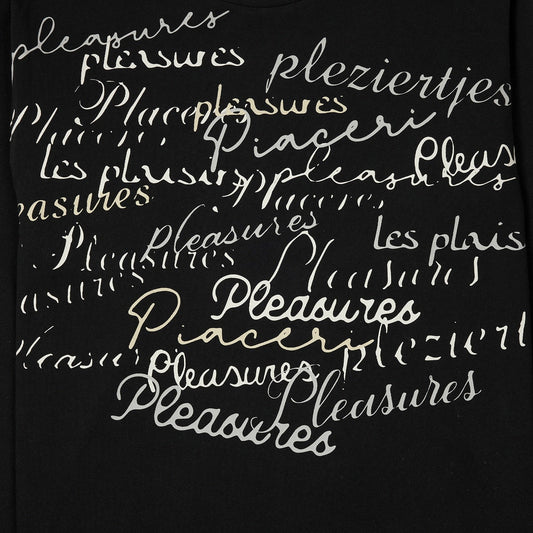 pleasures
pleasures
pleziertjes
Placeres
pleasures
Piaceri
Placeres
Pleasures
les plaisirs
pleasures
Placeres
easures
Pleasures
les plais
Pleasures
Pleasures
asures
Pleasures
Piaceri
pleziert
Pleasures
Pleasures
Pleasures